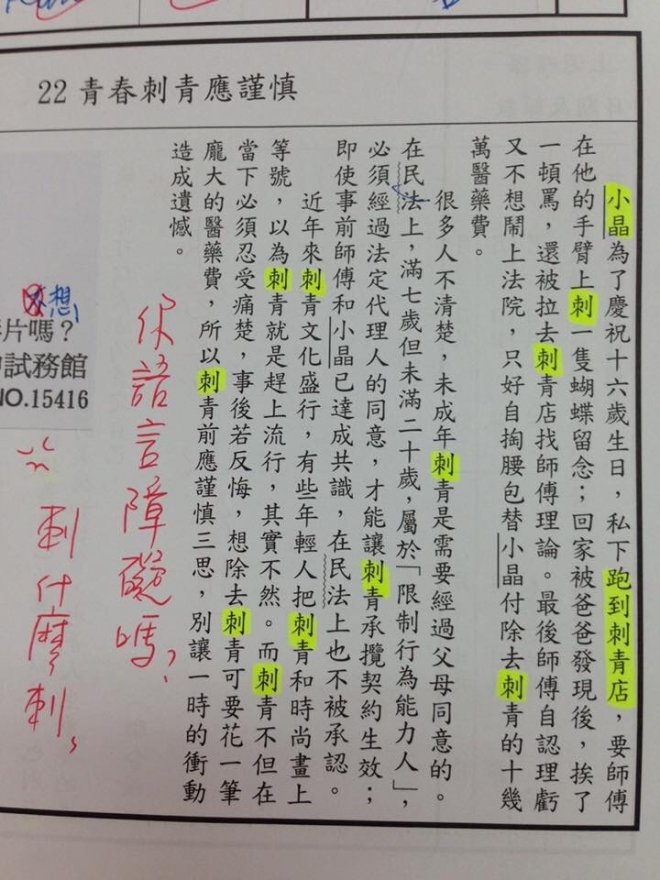 22 青春刺青應謹慎
小晶為了慶祝十六歲生日，私下跑到刺青店，要師傅
在他的手臂上刺一隻蝴蝶留念；回家被爸爸發現後，挨了
一頓罵，還被拉去刺青店找師傅理論。最後師傅自認理虧
又不想鬧上法院，只好自掏腰包替小晶付除去刺青的十幾
萬醫藥費。
很多人不清楚，未成年刺青是需要經過父母同意的。
在民法上，滿七歲但未滿二十歲，屬於「限制行為能力人」，
必須經過法定代理人的同意，才能讓刺青承攬契約生效；
即使事前師傅和小晶已達成共識，在民法上也不被承認。
近年來刺青文化盛行，有些年輕人把刺青和時尚畫上
等號，以為刺青就是趕上流行，其實不然。而刺青不但在
當下必須忍受痛楚，事後若反悔，想除去刺青可要花一筆
龐大的醫藥費，所以刺青前應謹慎三思，別讓一時的衝動
造成遺憾。
你語言障礙嗎？
刺什麼刺，
想
片嗎？
試務館
NO.15416